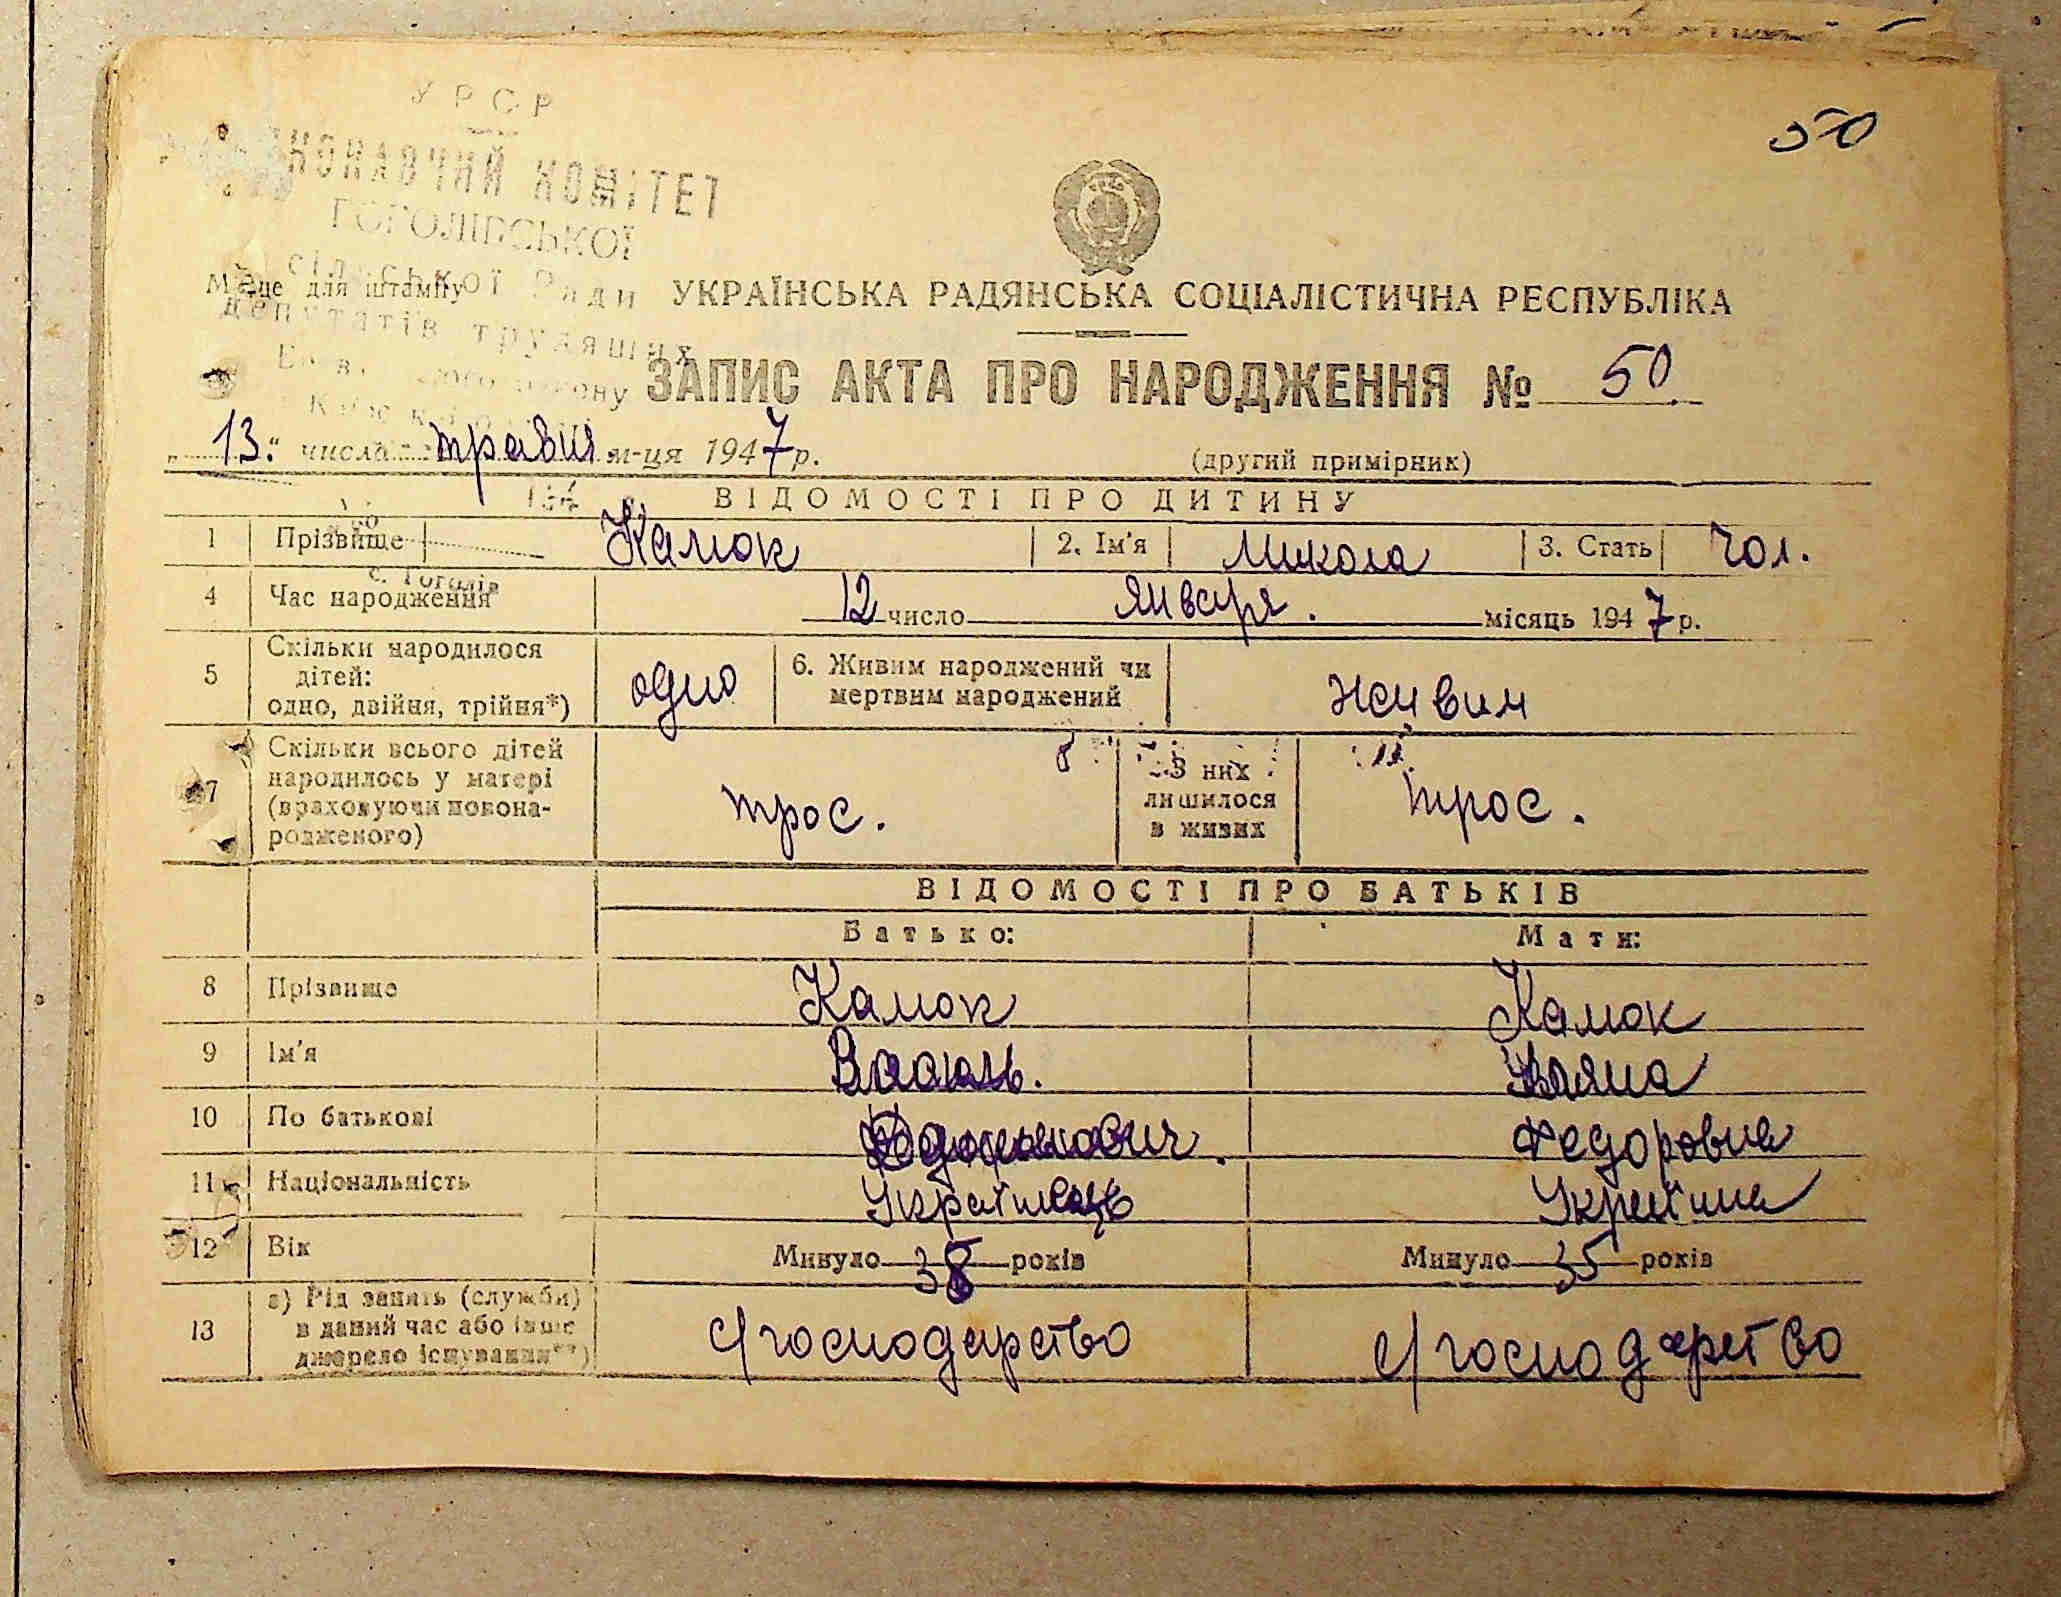 УРСР
50
КОНАВЧИЙ КОМІТЕТ
ГОГОЛІВСЬКОЇ
сільської Ради
Місце для штампу
УКРАЇНСЬКА РАДЯНСЬКА СОЦІАЛІСТИЧНА РЕСПУБЛІКА
депутатів трудящих
ЗАПИС АКТА ПРО НАРОДЖЕННЯ № 50
„13“ числа травня м-ця 1947 р.
(другий примірник)
ВІДОМОСТІ ПРО ДИТИНУ
1 Прізвище Камок 2. Ім'я Микола 3. Стать Чол.
с. Гоголів
4 Час народження 12 число января. місяць 1947 р.
5 Скільки народилося дітей: одно, двійня, трійня*) одно 6. Живим народжений чи мертвим народжений живим
7 Скільки всього дітей народилось у матері (враховуючи новонародженого) трое. З них лишилося в живих трое.
ВІДОМОСТІ ПРО БАТЬКІВ
Батько: Мати:
8 Прізвище Камок Камок
9 Ім'я Василь. Уляна
10 По батькові Федоровна
11 Національність Українець Українка
12 Вік Минуло 38 років Минуло 35 років
13 а) Рід занять (служби) в даний час або інше джерело існування**) с/господарство с/господарство